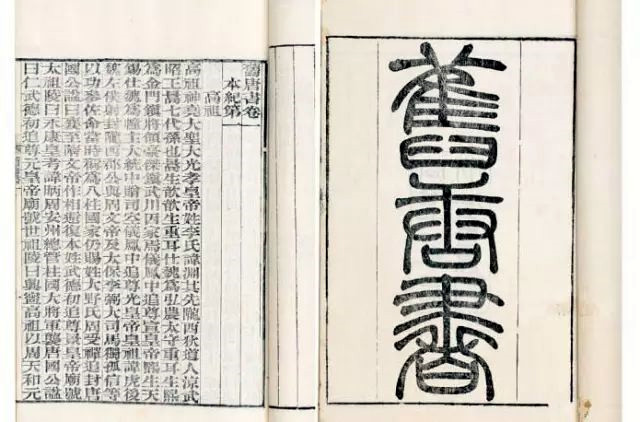 舊唐書
舊唐書卷
本紀第一
高祖
高祖神堯大聖大光孝皇帝姓李氏諱淵其先隴西狄道人涼武
昭王暠七代孫也暠生歆歆生重耳仕魏爲弘農太守重耳生熙
爲金門鎮將領豪傑鎮武川因家焉儀鳳中追尊宣皇帝熙生天
錫仕魏爲幢主大統中贈司空儀鳳中追尊光皇帝皇祖諱虎後
魏左僕射封隴西郡公與周文帝及太保李弼大司馬獨孤信等
以功參佐命當時稱爲八柱國家仍賜姓大野氏周受禪追封唐
國公諡曰襄至隋文帝作相還復本姓武德初追尊景皇帝廟號
太祖陵曰永康皇考諱昞周安州總管柱國大將軍襲唐國公諡
曰仁武德初追尊元皇帝廟號世祖陵曰興寧高祖以周天和元